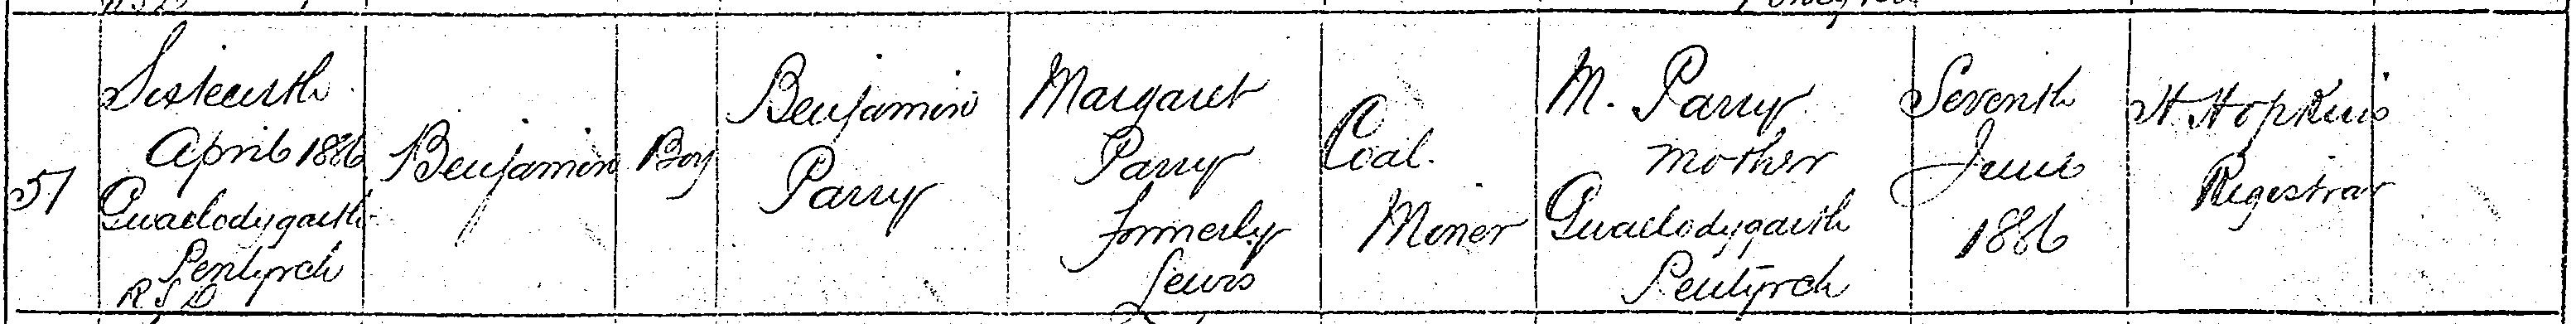 51
Sixteenth
April 1886
Gwaelodygarth
Pentyrch
R S D
Benjamin
Boy
Benjamin
Parry
Margaret
Parry
formerly
Lewis
Coal
Miner
M. Parry
mother
Gwaelodygarth
Pentyrch
Seventh
June
1886
H Hopkins
Registrar